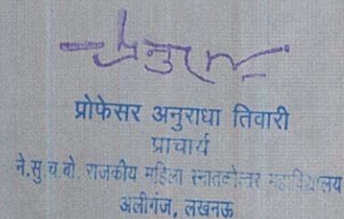 प्रोफेसर अनुराधा तिवारी
प्राचार्य
ने.सु.च.बो. राजकीय महिला स्नातकोत्तर महाविद्यालय
अलीगंज, लखनऊ